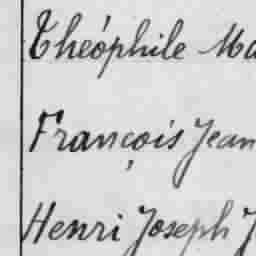 Théophile Ma
François Jean
Henri Joseph J